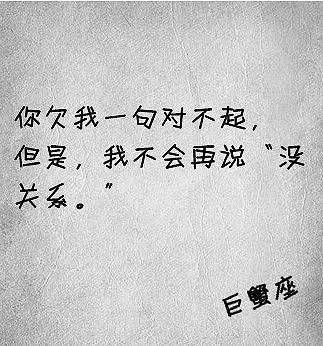 你欠我一句对不起，
但是，我不会再说“没
关系。”
巨蟹座